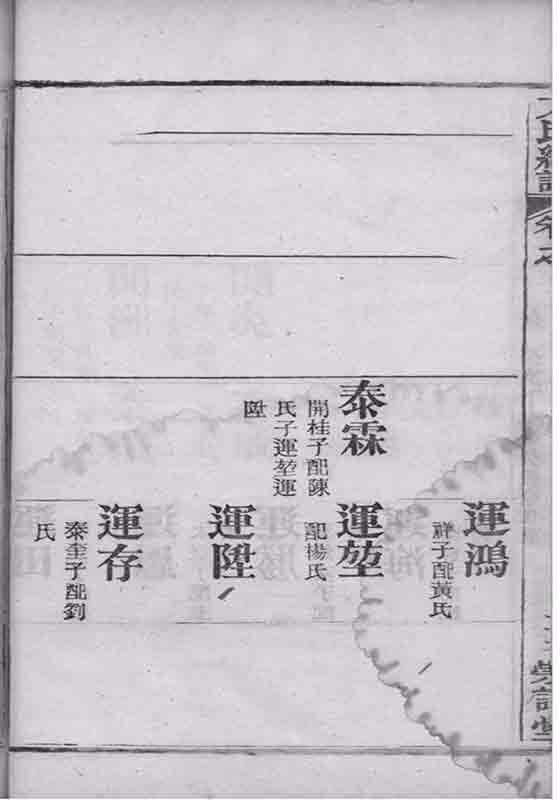 氏
卷
泰霖
開桂子配陳
氏子運堃運
陞
運鴻
祥子配黃氏
運堃
配楊氏
運陞
運存
泰奎子配劉
氏